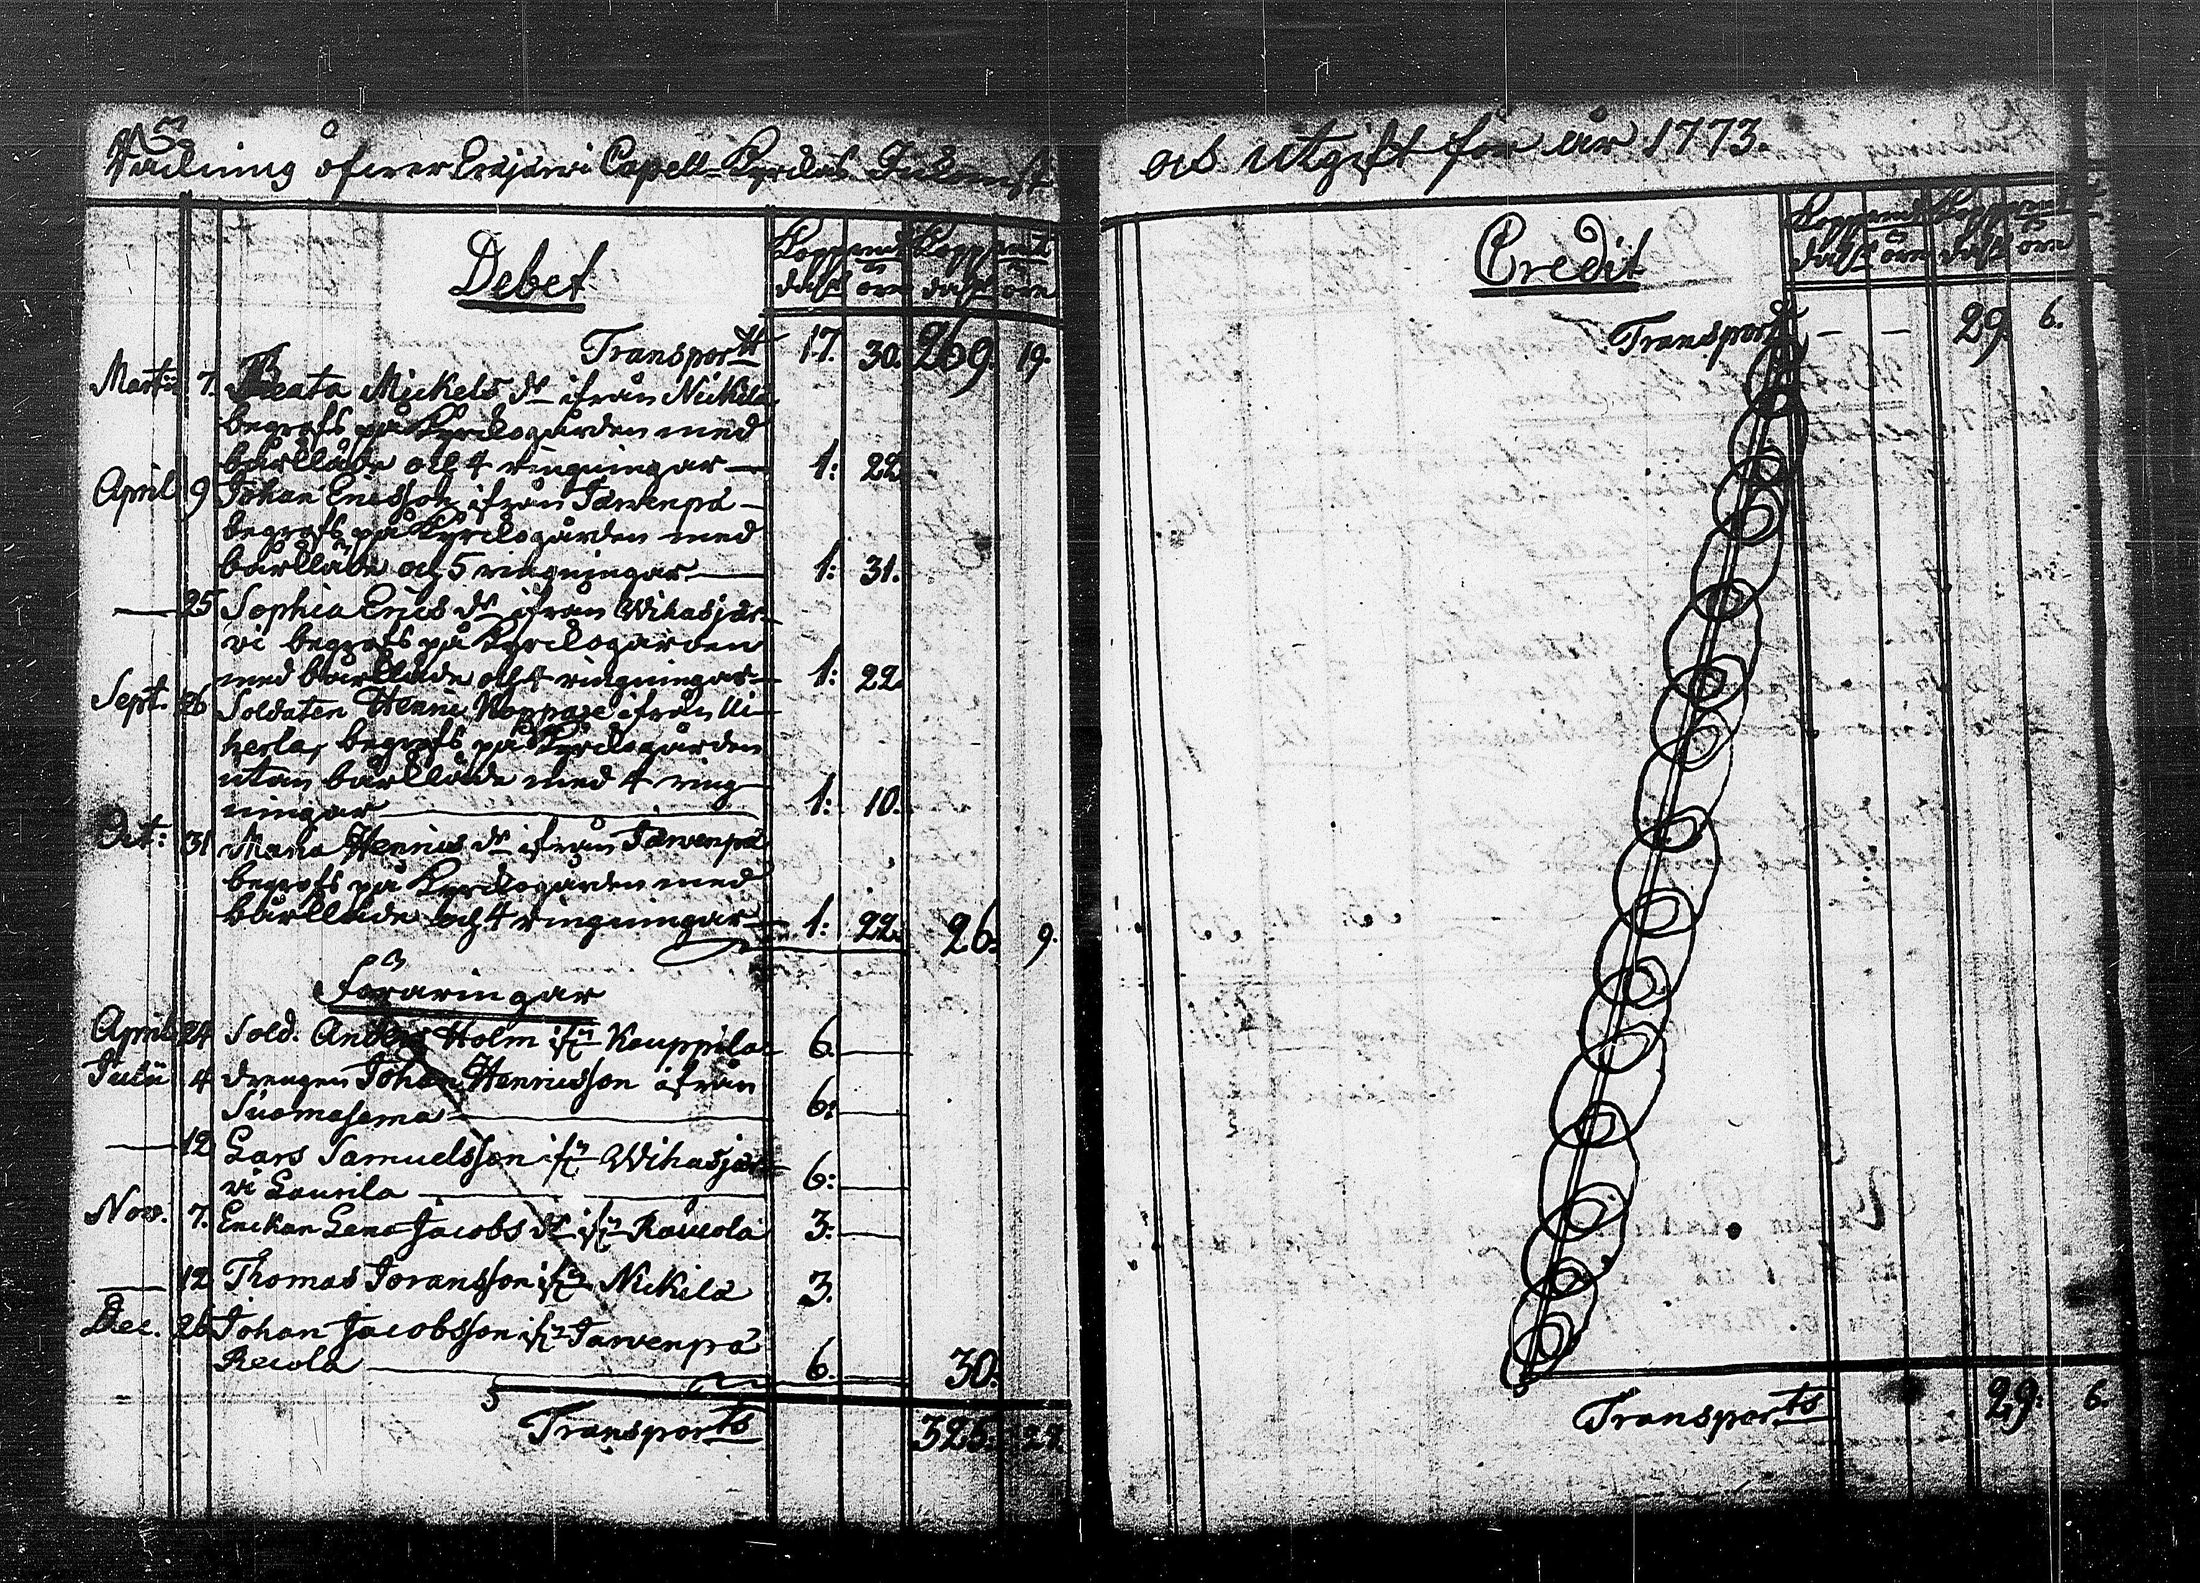 Räkning öfwer Eräjärwi Capell-Kyrckas Inkomst
Debet
Kopparmt Kopparmt
dalr öre dalr öre
Transportt 17. 30. 269. 19.
Martii 7. Beata Mickels dr ifrån Nickilä
begrofs på Kyrckogården med
bårkläde och 4 ringningar — 1: 22.
April 9 Johan Ericsson ifrån Järvenpä
begrofs på Kyrckogården med
bårkläde och 5 ringningar — 1: 31.
— 25 Sophia Erics dr ifrån Wihasjär-
vi begrofs på Kyrckogården
med bårkläde och 4 ringningar — 1: 22.
Sept. 26 Soldaten Henric ifrån Ui-
herla, begrofs på Kyrckogården
utan bårkläde med 4 ring-
ningar — 1: 10.
Oct: 31 Maria Henrics dr ifrån Järvenpä
begrofs på Kyrckogården med
bårkläde och 4 ringningar — 1: 22. 26. 9.
Föräringar
April 24 Sold. Anders Holm ifrn Kauppila 6. —
Julii 4 drengen Johan Henricsson ifrån
Suomasema — 6: —
— 12 Lars Samuelsson ifrn Wihasjär-
vi Laurila — 6: —
Nov. 7. Enckan Lena Jacobs dr ifrn 3. —
— 12 Thomas Joransson ifrn Nickilä 3.
Dec. 26 Johan Jacobsson ifrn Järvenpä
Recola — 6. — 30.
Transports 325. 27.
och utgift för år 1773.
Credit
Kopparmt Kopparmt
dalr öre dalr öre
Transportt — — 29. 6.
Transports 29. 6.